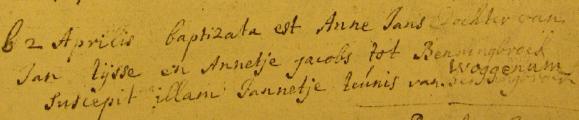 b 2 Aprilis baptizata est Anne Jans Dochter van
Jan tijsse en Annetje jacobs tot Benningbroek
suscepit illam Jannetje teunis van Woggenum